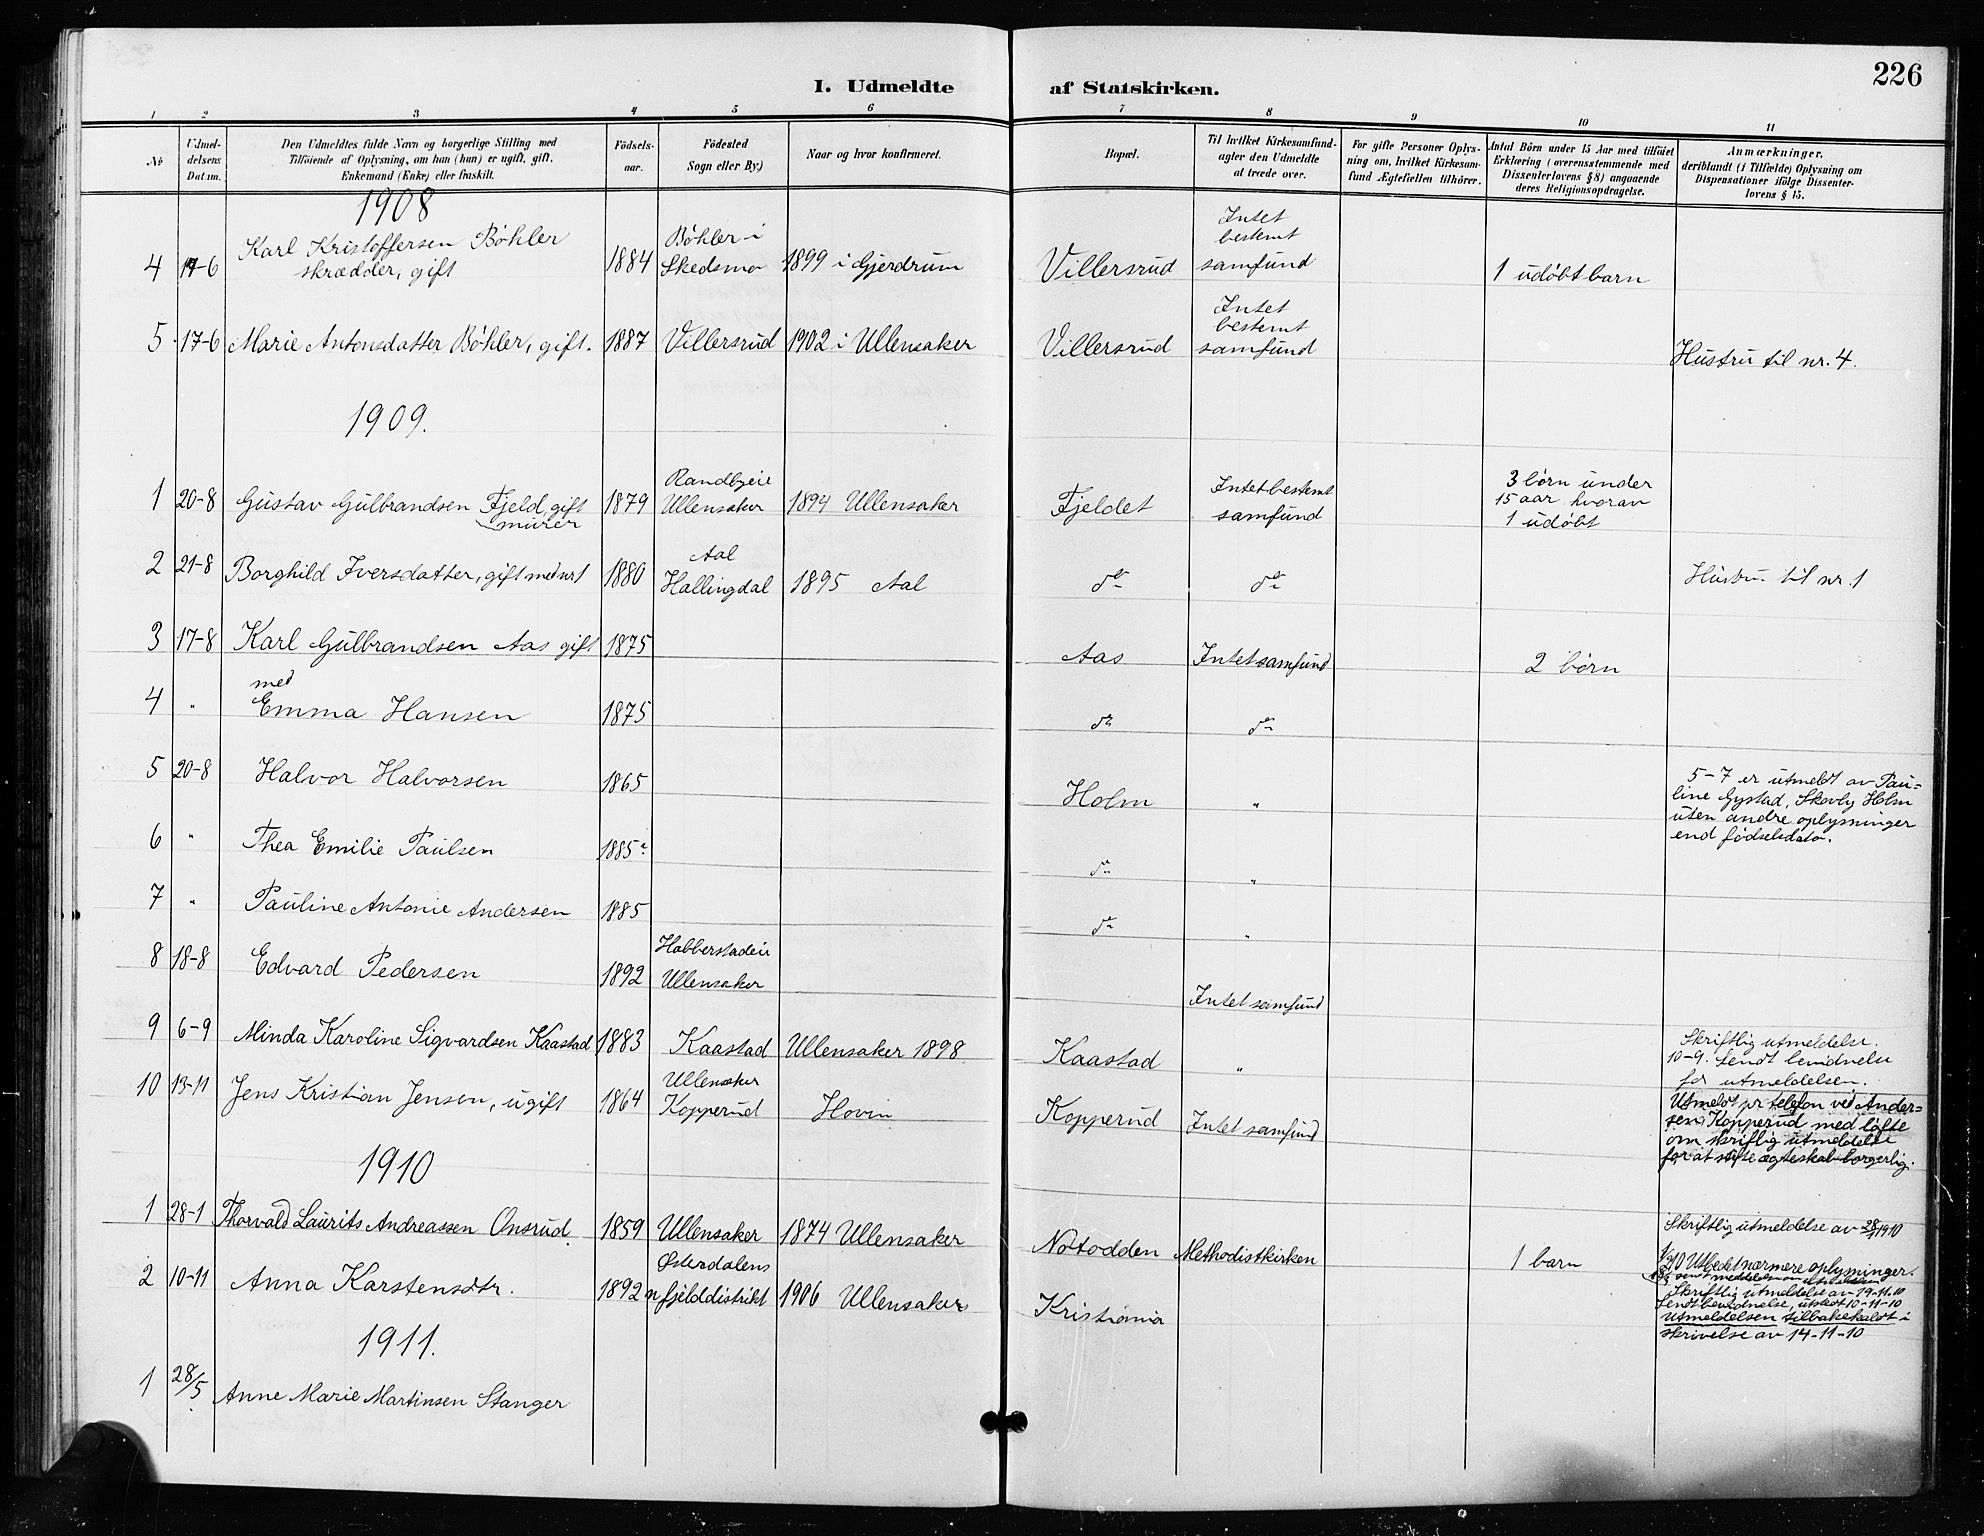 226
I. Udmeldte af Statskirken.
1 2 3 4 5 6 7 8 9 10 11
No
Udmel-
delsens
Datum.
Den Udmeldtes fulde Navn og borgerlige Stilling med
Tilföiende af Oplysning, om han (hun) er ugift, gift,
Enkemand (Enke) eller fraskilt.
Födsels-
aar.
Födested
Sogn eller By.)
Naar og hvor konfirmeret.
Bopæl.
Til hvilket Kirkesamfund
agter den Udmeldte
at træde over.
For gifte Personer Oplys-
ning om, hvilket Kirkesam-
fund Ægtefællen tilhörer.
Antal Börn under 15 Aar med tilföiet
Erklæring (overensstemmende med
Dissenterlovens § 8) angaaende
deres Religionsopdragelse.
Anmærkninger,
deriblandt (i Tilfælde) Oplysning om
Dispensationer ifölge Dissenter-
lovens § 15.
1908
4 17-6 Karl Kristoffersen Bøhler
skrædder, gift
1884
Bøhler i
Skedsmo
1899 i Gjerdrum
Villersrud
Intet
bestemt
samfund
1 udøbt barn
5 17-6 Marie Antonsdatter Bøhler, gift. 1887 Villersrud 1902 i Ullensaker
Villersrud
Intet
bestemt
samfund
Hustru til nr. 4.
1909.
1 20-8 Gustav Gulbrandsen Fjeld, gift
murer
1879
Randbyeie
Ullensaker
1894 Ullensaker
Fjeldet
Intet bestemt
samfund
3 børn under
15 aar hvorav
1 udøbt
2 21-8 Borghild Iversdatter, gift med nr 1 1880
Aal
Hallingdal
1895 Aal
do do
Hustru til nr. 1
3 17-8 Karl Gulbrandsen Aas gift 1875
Aas Intet samfund 2 børn
med
4 " Emma Hansen 1875
do do
5 20-8 Halvor Halvorsen 1865
Holm "
5-7 er utmeldt av Pau-
line Gystad, Skovly Holm
uten andre oplysninger
end fødselsdato.
6 " Thea Emilie Paulsen 1885
do "
7 " Pauline Antonie Andersen 1885
do "
8 18-8 Edvard Pedersen 1892
Habberstadeie
Ullensaker
Intet samfund
9 6-9 Minda Karoline Sigvardsen Kaastad 1883 Kaastad Ullensaker 1898
Kaastad "
Skriftlig utmeldelse.
10-9. Sendt bevidnelse
for utmeldelsen.
10 13-11 Jens Kristian Jensen, ugift 1864
Ullensaker
Kopperud
Hovin
Kopperud Intet samfund
Utmeldt pr telefon ved Ander-
sen, Kopperud med løfte
om skriflig utmeldelse
for at stifte ægteskab borgerlig.
1910
1 28-1 Thorvald Laurits Andreassen Onsrud. 1859 Ullensaker 1874 Ullensaker
Notodden Methodistkirken 1 barn
Skriftlig utmeldelse av 28/1 1910
Utbedt nærmere oplysninger.
2 10-11 Anna Karstensdtr. 1892
Østerdalens
fjelddistrikt
1906 Ullensaker
Kristiania
Skriftlig utmeldelse av
Sendt bevidnelse, utstedt 10-11-10
Utmeldelsen tilbakekaldt i
skrivelse av 14-11-10
1911.
1 28/5 Anne Marie Martinsen Stanger